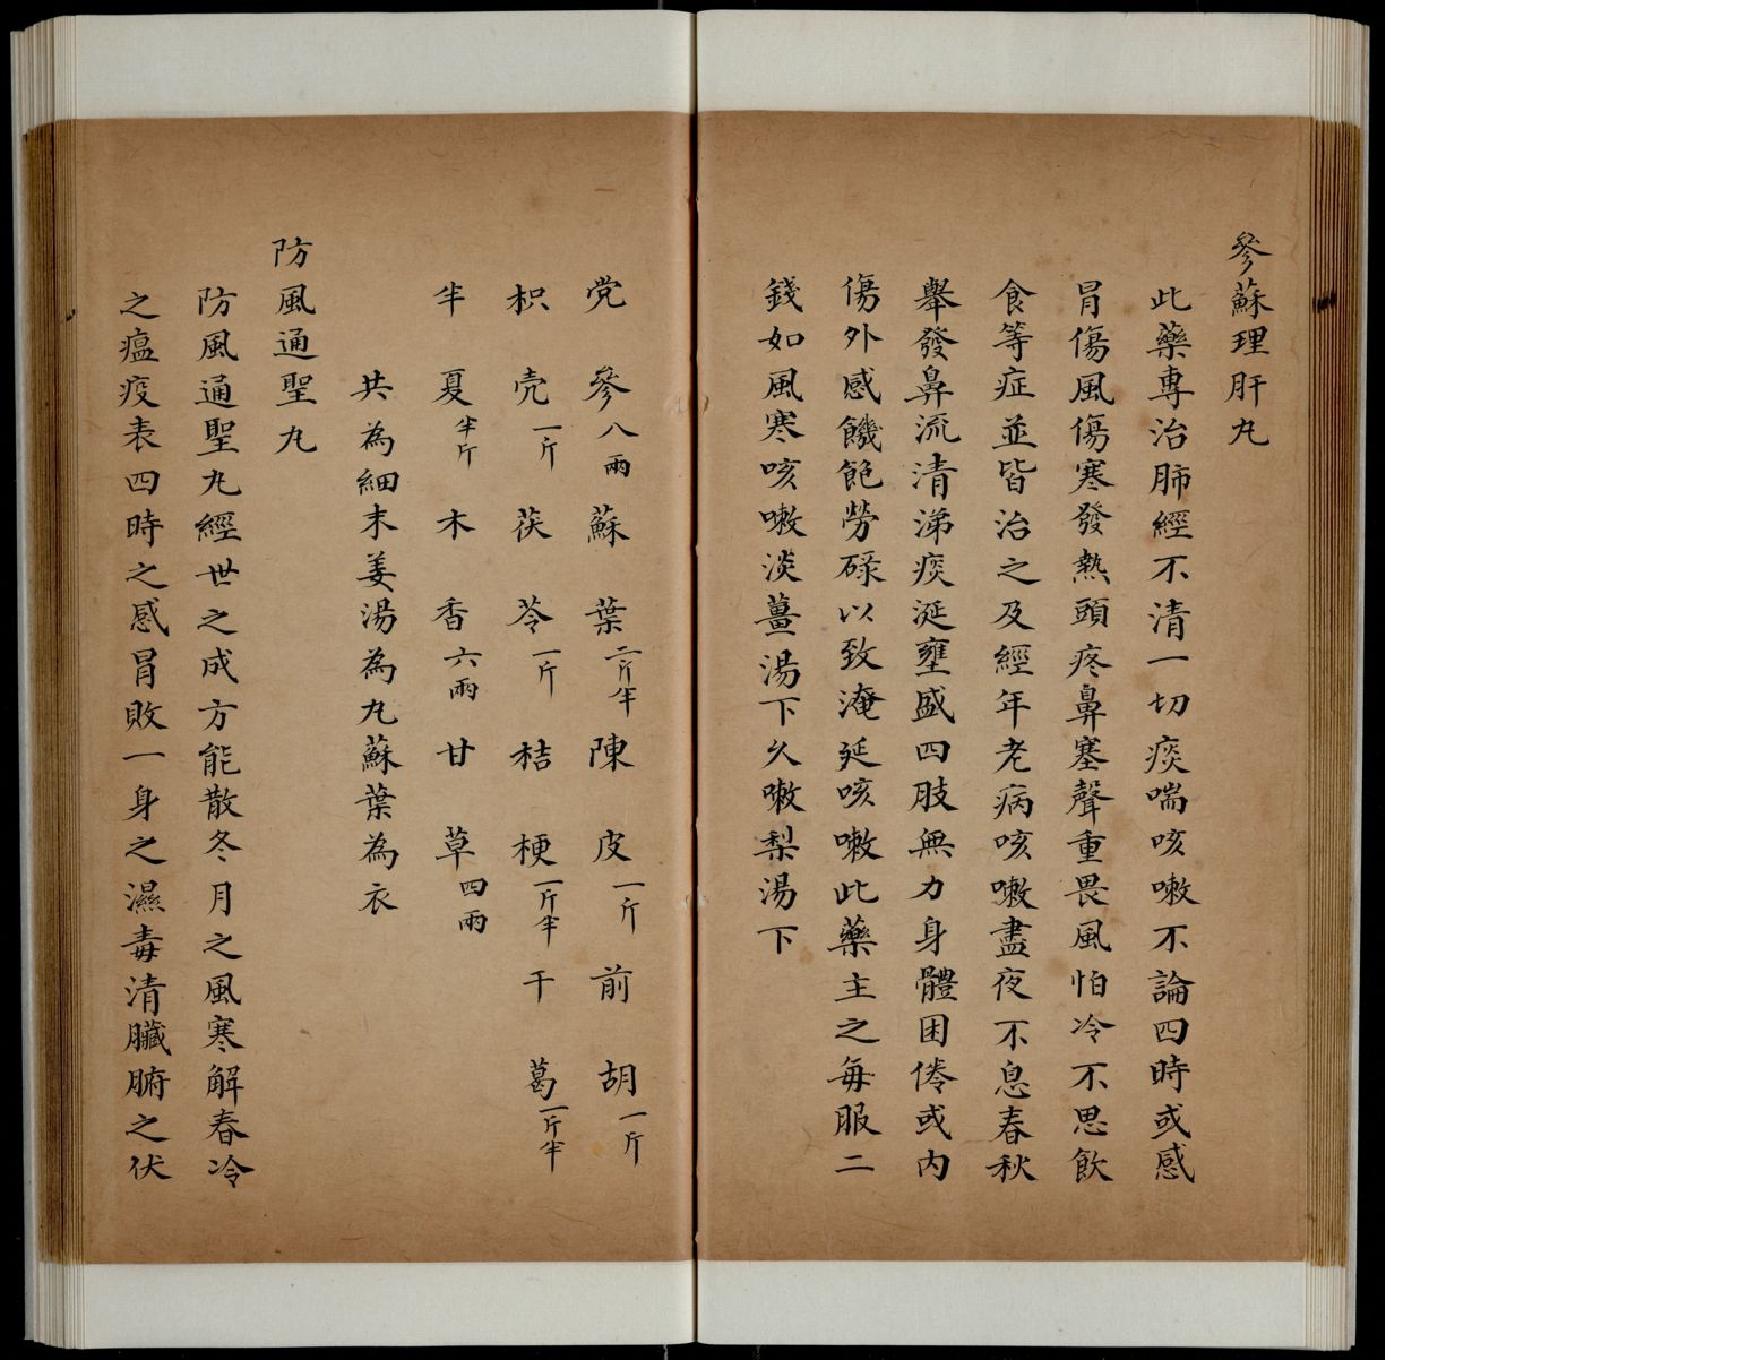 參蘇理肝丸
此藥專治肺經不清一切痰喘咳嗽不論四時或感
冒傷風傷寒發熱頭疼鼻塞聲重畏風怕冷不思飲
食等症並皆治之及經年老病咳嗽盡夜不息春秋
舉發鼻流清涕痰涎壅盛四肢無力身體困倦或內
傷外感饑飽勞碌以致淹延咳嗽此藥主之每服二
錢如風寒咳嗽淡薑湯下久嗽梨湯下
党參八兩蘇葉二斤半陳皮一斤前胡一斤
枳壳一斤茯苓一斤桔梗一斤半干葛一斤半
半夏半斤木香六兩甘草四兩
共為細末姜湯為丸蘇葉為衣
防風通聖丸
防風通聖丸經世之成方能散冬月之風寒解春冷
之瘟疫表四時之感冒敗一身之濕毒清臟腑之伏